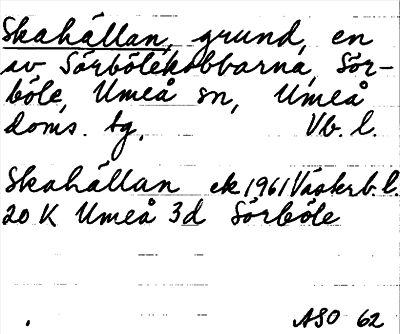 Skahällan, grund, en
av Sörbölekobbarna, Sör-
böle, Umeå sn, Umeå
doms. tg, Vb. l.
Skahällan ek 1961 Västerb. l.
20 K Umeå 3d Sörböle
ASO 62